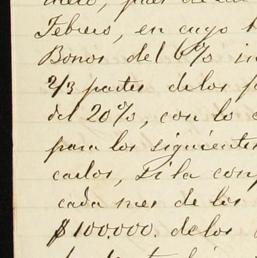 Febrero, en cuyo
Bonos del 6% in
2/3 partes de los
del 20%, con lo
para los siguientes
carlos, Si la con
cada mes de los
$100.000. de los